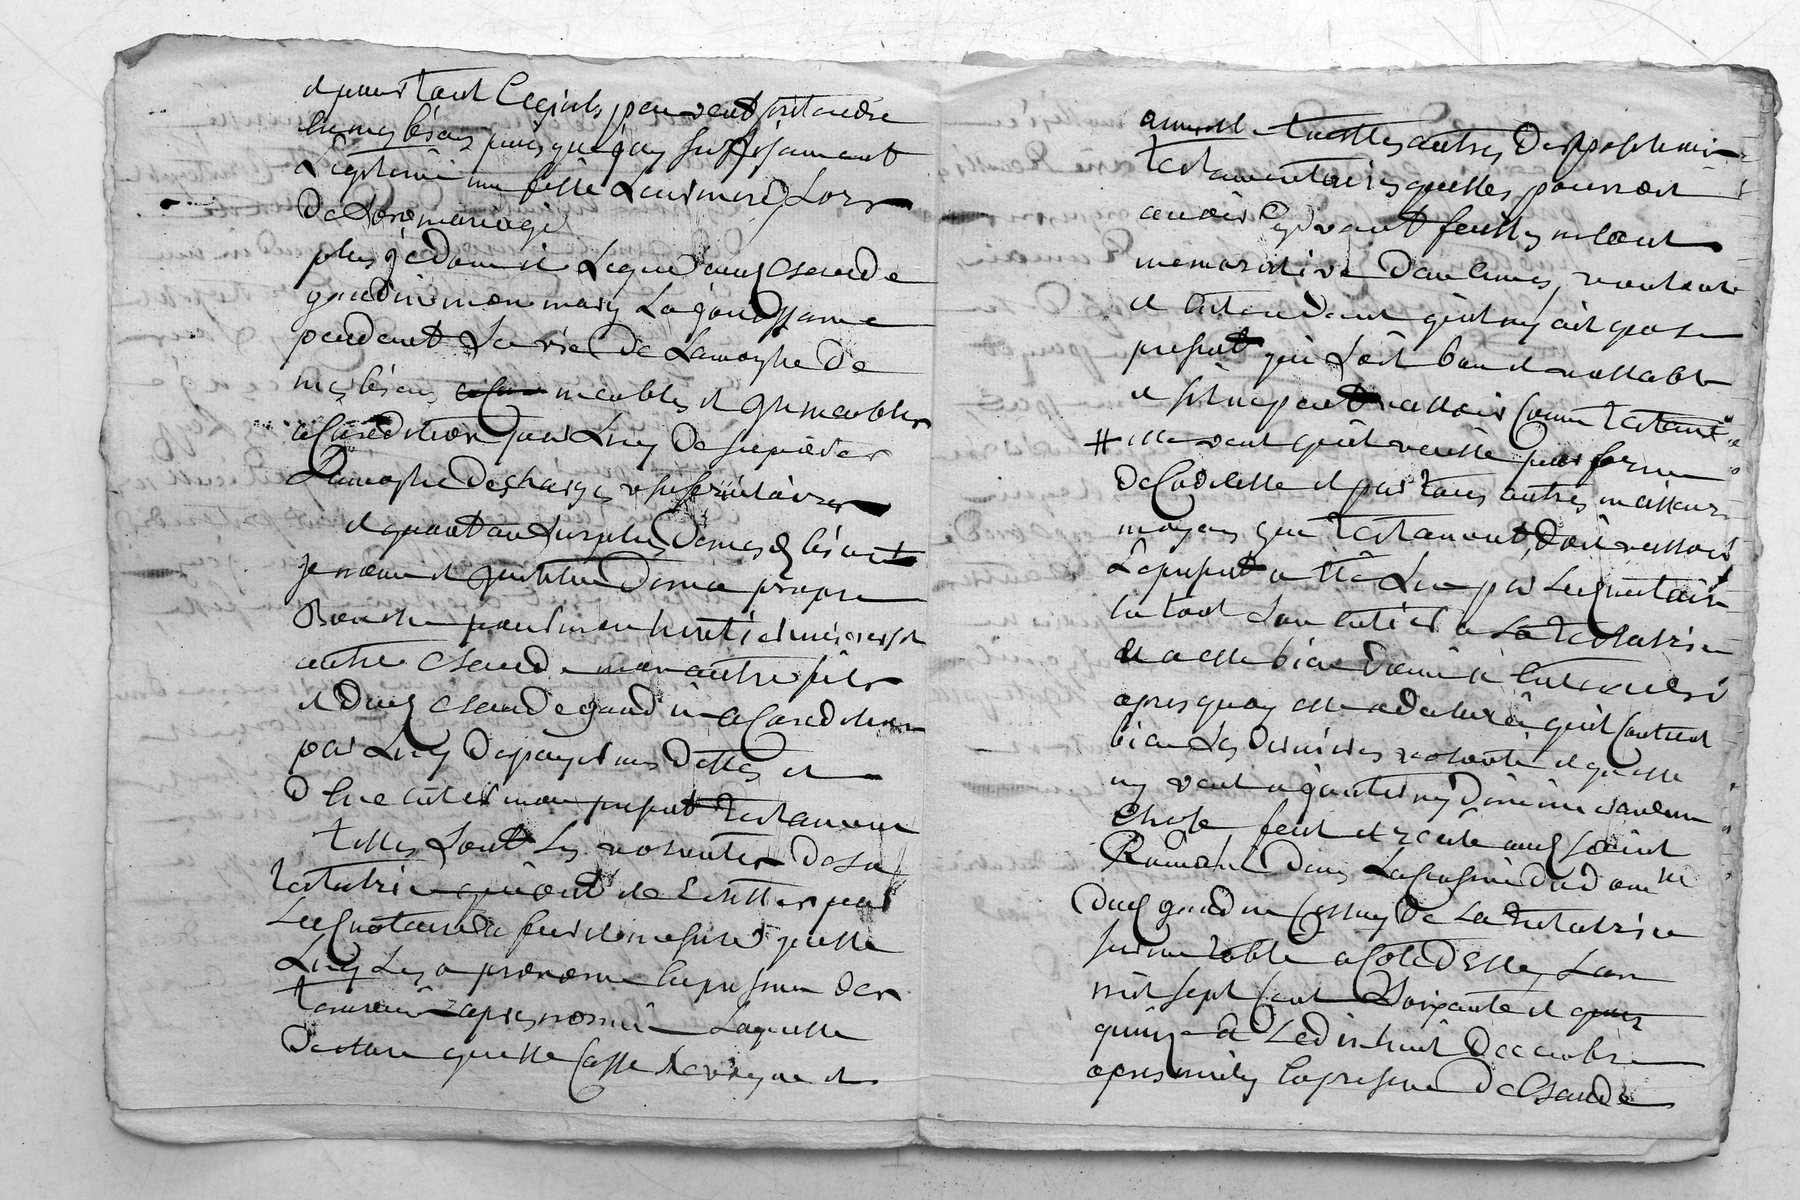 et pour tout ce qu'ils peuvent prétendre
en mes biens puis que j'ay suffisamment
feue leur mere lors
de son mariage
plus je donne et legue aud Claude
gaudin mon mary la jouissance
pendant sa vie de la moytie de
mes biens meubles et immeubles
a condition par luy de suporter
la moytie des charges usufruitaires
et quant au surplus de mes d biens
je nomme et institue de ma propre
bouche pour mon heritier universel
autre Claude mon autre fils
et dud Claude gaudin a condition
par luy de payer mes dettes et
d'executer mon present testament
telles sont les volontes de la
testatrice qui ont été par
led notaire a fur et mesure qu'elle
luy les a prononcé en presence des
temoins apres nommés laquelle
declare qu'elle casse revoque et
annulle toutes autres dispositions
testamentaires qu'elles pourroit
avoir cy devant faittes
memorative d'aucunes, voulant
et entendant qu'il n'y ait que ce
present qui soit bon et vallable
et s'il ne peut valloir comme testament
# elle veut qu'il vaille par forme
de Codicille et par tous autres meilleurs
moyens que testament doit valloir
le present a été lu par led notaire
en tout son entier a la testatrice
et a elle bien donné a entendre
apres quoy elle a declaré qu'il contient
bien les dernieres volonté et qu'elle
ny veut ajouter ny diminuer aucune
chose, fait et recité aud saint
Romain dans la cuisine du dom.le
dud gaudin de la testatrice
sur une table a coté d'elle, l'an
mil sept cent soixante et
quinze et le dixhuit Decembre
apres midy en presence de Claude